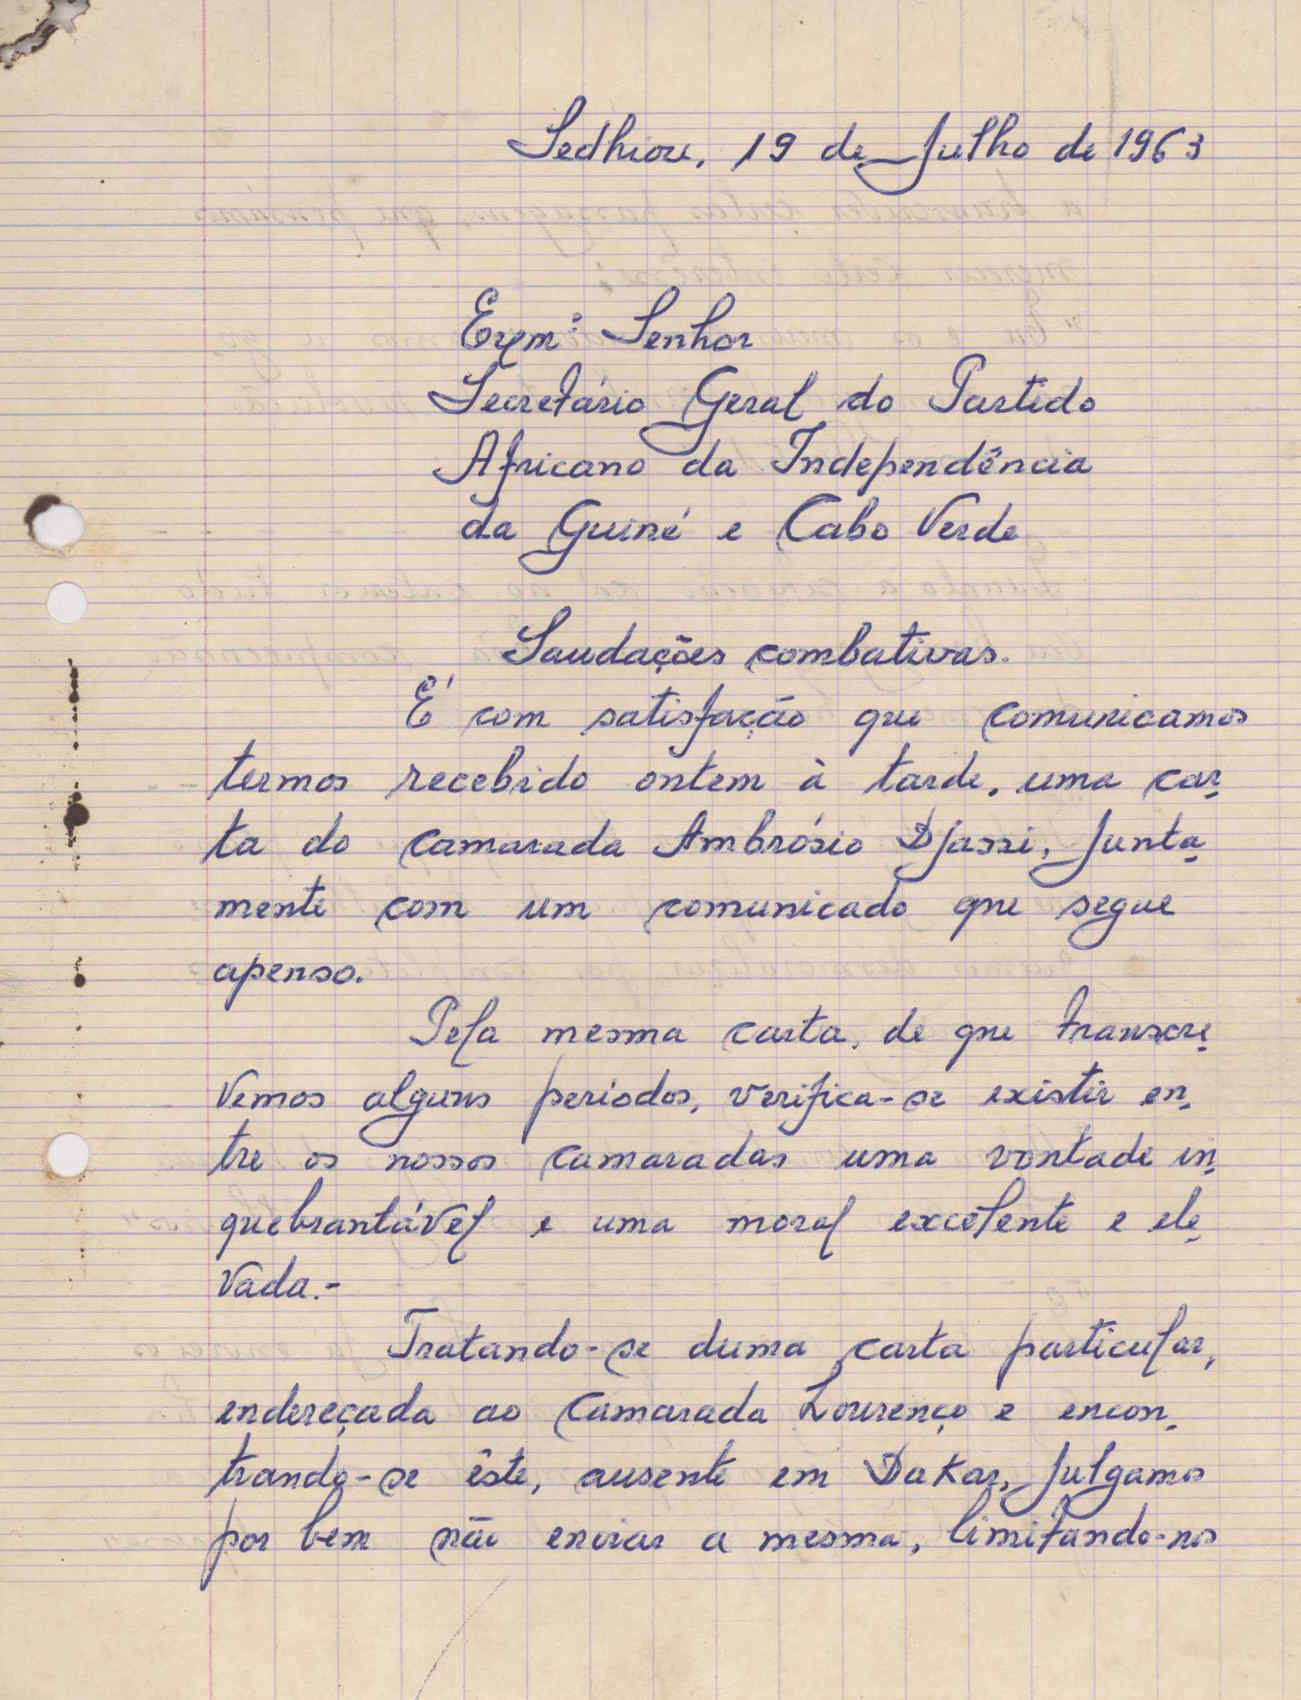 Sedhiou, 19 de Julho de 1963
Exmº Senhor
Secretário Geral do Partido
Africano da Independência
da Guiné e Cabo Verde
Saudações combativas.
É com satisfação que comunicamos
termos recebido ontem à tarde, uma car-
ta do camarada Ambrósio Djassi, junta-
mente com um comunicado que segue
apenso.
Pela mesma carta, de que transcre-
vemos alguns períodos, verifica-se existir en-
tre os nossos camaradas uma vontade in-
quebrantável e uma moral excelente e ele-
vada.-
Tratando-se duma carta particular,
endereçada ao camarada Lourenço e encon-
trando-se êste, ausente em Dakar, julgamos
por bem não enviar a mesma, limitando-nos